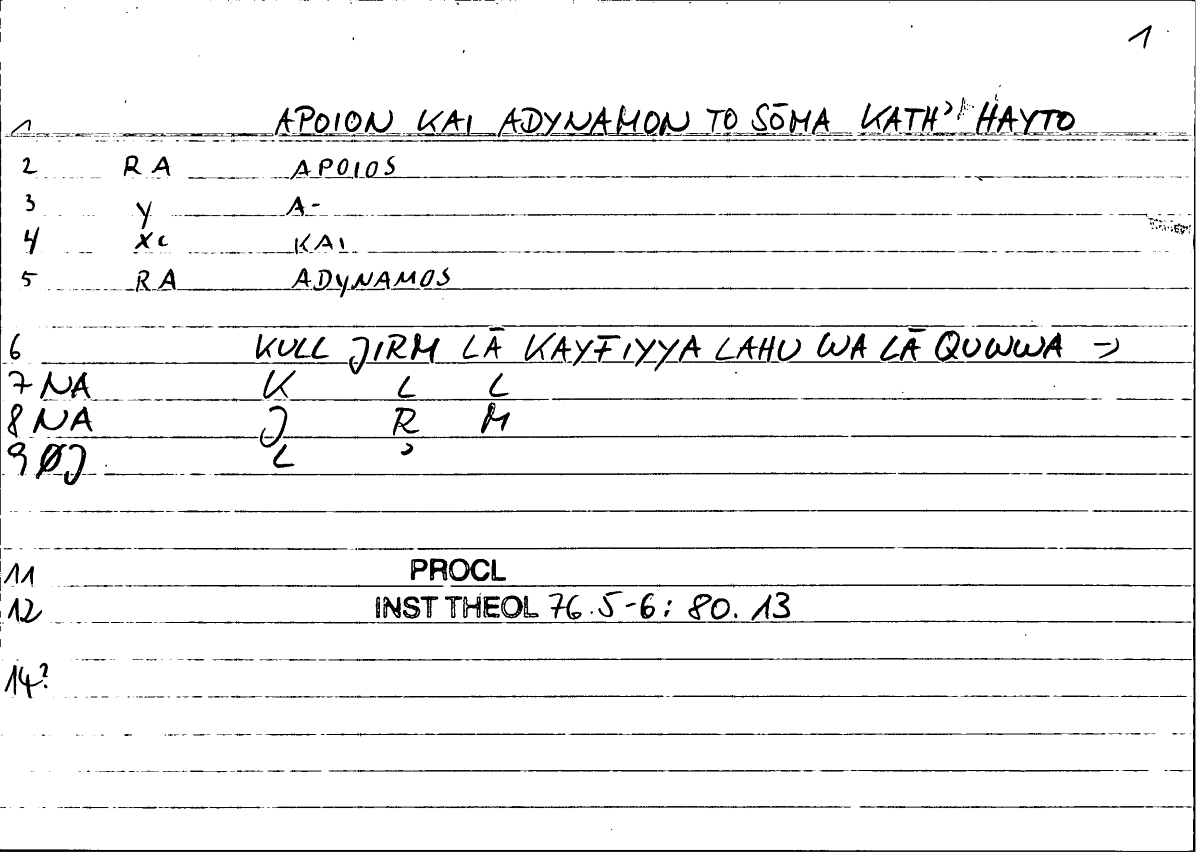 1
1 APOION KAI ADYNAMON TO SŌMA KATH' HAYTO
2 RA APOIOS
3 Y A-
4 XC KAI
5 RA ADYNAMOS
6 KULL JIRM LĀ KAYFIYYA LAHU WA LĀ QUWWA →
7 NA K L L
8 NA J R M
9 ØJ L ʾ
11 PROCL
12 INST THEOL 76.5-6: 80.13
14?